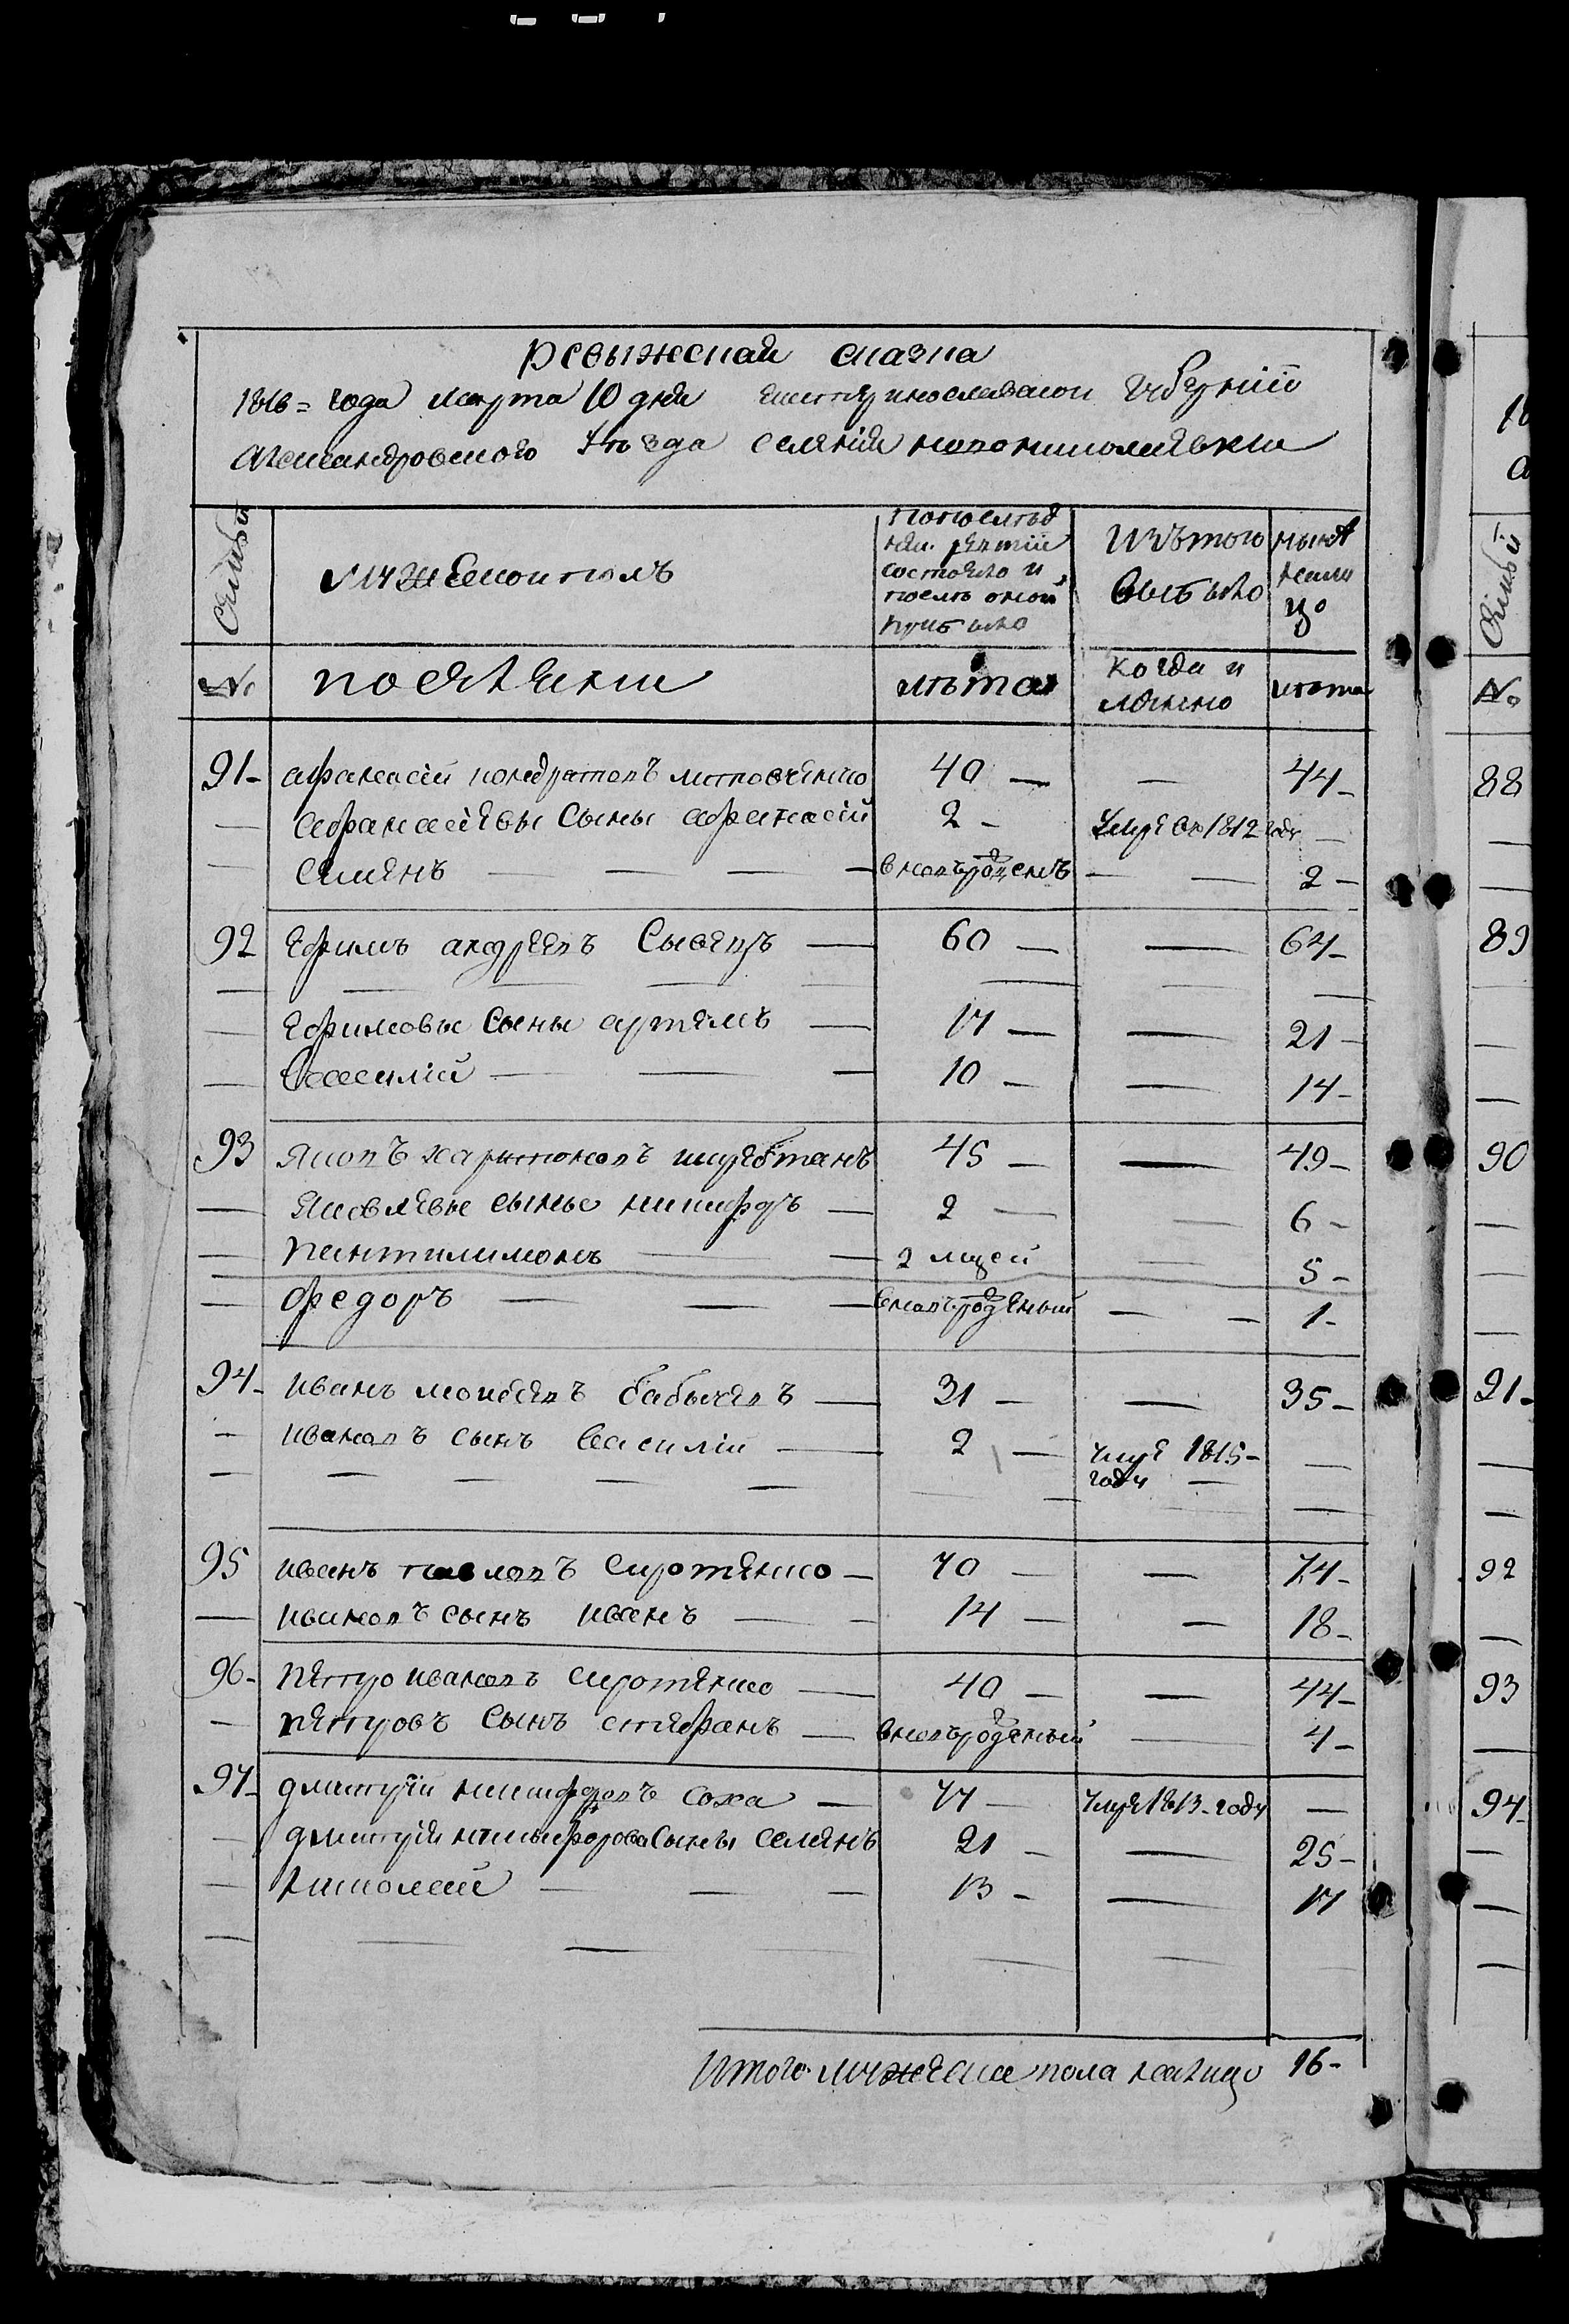 Ревыжская сказка
1816 = года марта 10 дня екатеринославской губернiи
Александровского уезда селенiя новониколаевки
Семьи
Мужескои полъ
Попослѣд
ней ревизiи
состояло и
послѣ оной
прибыло
Изътого
выбыло
нынѣ
нали
цо
№ поселяни лѣта Когда и
лѣта
91- афанасiй кондратовъ литовченко 40 — — 44-
— афанасiевы сыны афанасiй 2 - умре въ 1812 году —
— семенъ — — — вновърожденъ — — 2 -
92 ефимъ андреевъ Сывецъ — 60 — — 64-
— ефимовы сыны артемъ — 17 — — 21 -
— василiй — — — 10 — — 14-
93 яковъ харитоновъ шкребтанъ 45 — — 49-
— яковлевы сыны никифоръ — 2 — — 6 -
— пантилимонъ — — 2 мцей — 5 -
— федоръ — — — вновърожденый — — 1-
94- иванъ моисеевъ бабычевъ — 31 — — 35-
— ивановъ сынъ василiй — 2 — умре 1815- —
году —
95 иванъ павловъ сиротенко — 70 — — 74-
— ивановъ сынъ иванъ — — 14 — — 18-
96- петро ивановъ сиротенко — 40 — — 44-
— петровъ сынъ стефанъ — вновърожденый — 4-
97- дмитрiй никифоровъ соха — 77 — умре 1813-году —
— дмитрiя никифорова сыны семенъ 21 — — 25-
— николай — — — 13 - — 17
Итого мужеска пола налицо 16-
88
89
90
91-
92
93
94-
Семьи
№